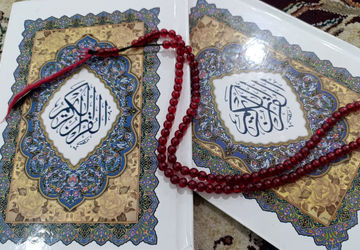 القرآن الكريم
القرآن الكريم